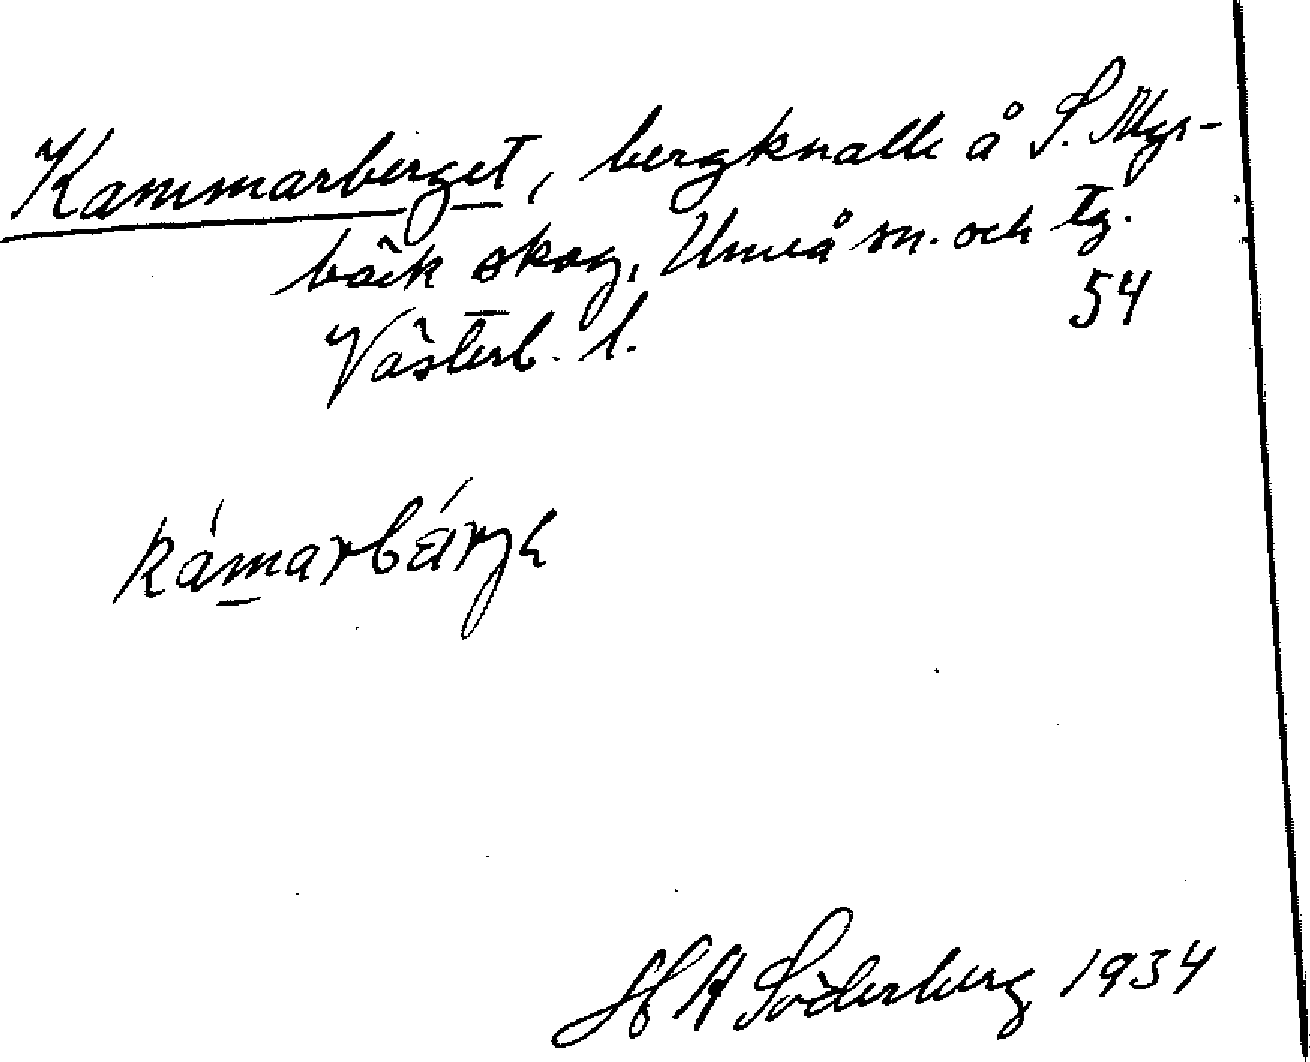 Kammarberget, bergknalle å S. Mys-
bäck skog, Umeå sn. och tg.
Västerb. l. 54
kámarbárje
H A Söderberg 1934